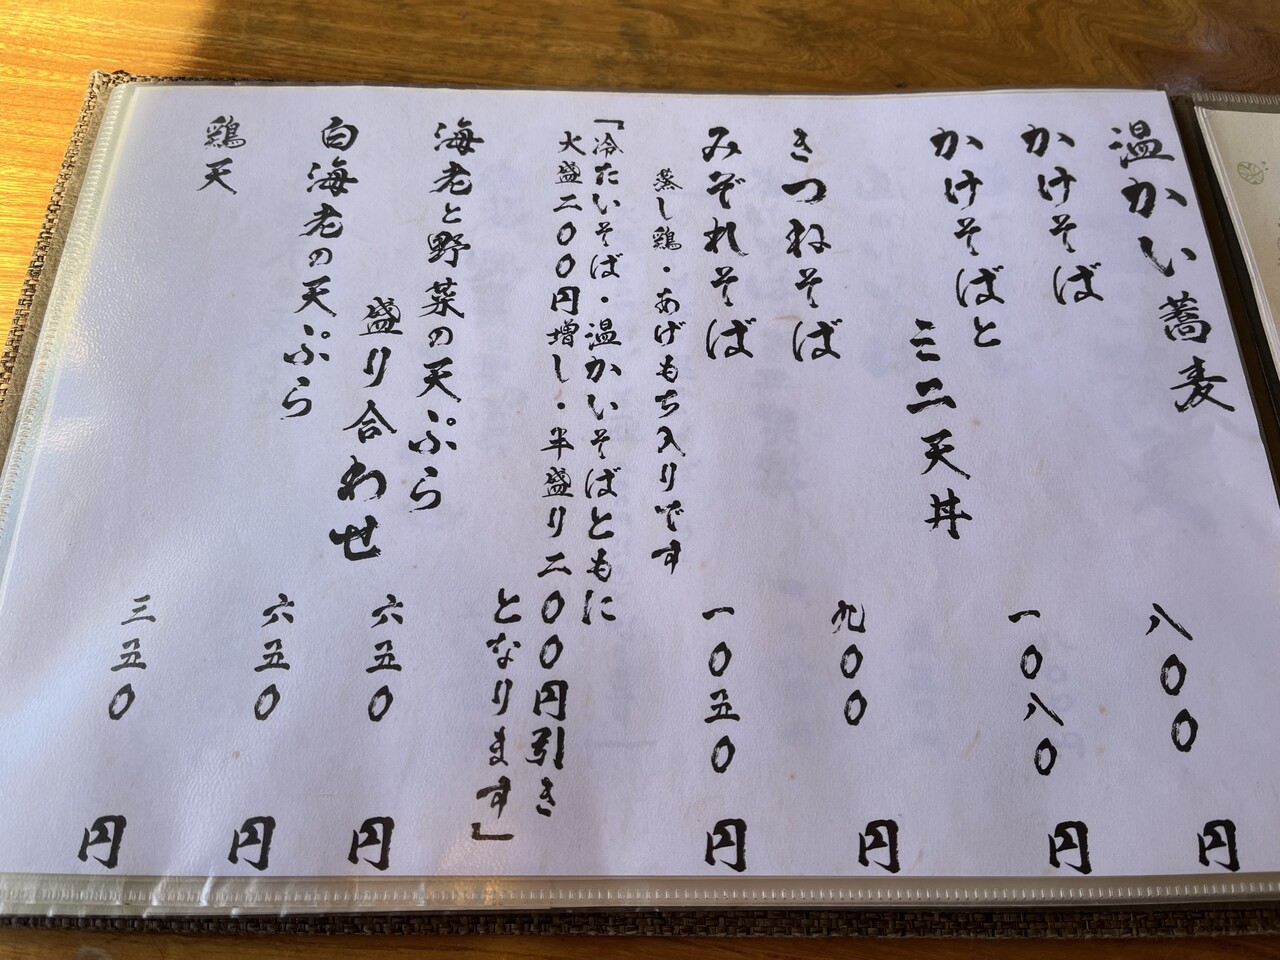 温かい蕎麦
かけそば 八〇〇円
かけそばと
ミニ天丼 一〇八〇円
きつねそば 九〇〇円
みぞれそば 一〇五〇円
蒸し鶏・あげもち入りです
「冷たいそば・温かいそばともに
大盛二〇〇円増し・半盛り二〇〇円引き
となります」
海老と野菜の天ぷら
盛り合わせ 六五〇円
白海老の天ぷら 六五〇円
鶏天 三五〇円